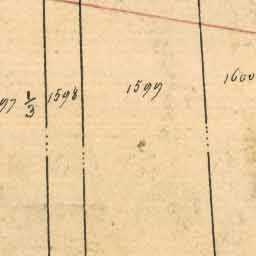 97 1/3
1598
1599
1600